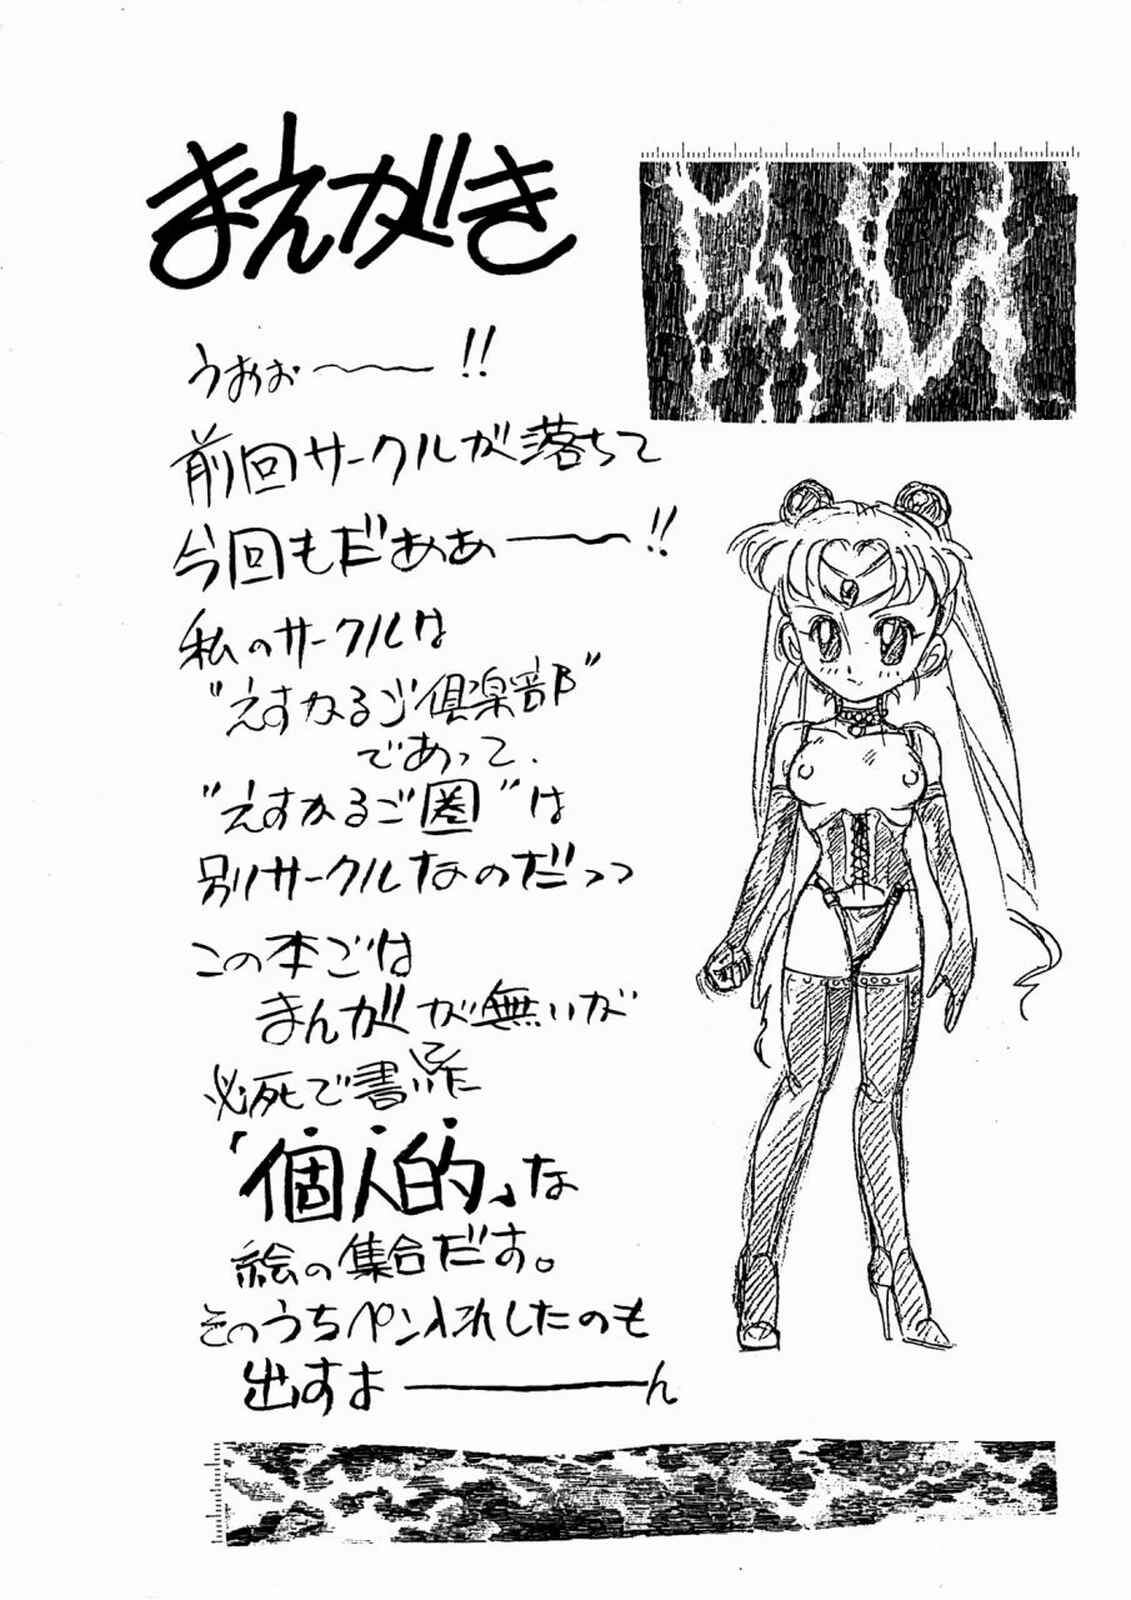 まえがき
うおぉ〜!!
前回サークルが落ちて
今回もだぁああー〜!!
私のサークルは
"えすかるご倶楽部"
であって、
"えすかるご圏"は
別サークルなのだっっ
この本ごは
まんがが無いが
必死で書いた
「個人的」な
絵の集合だす。
そのうちペン入れしたのも
出すよ——ん